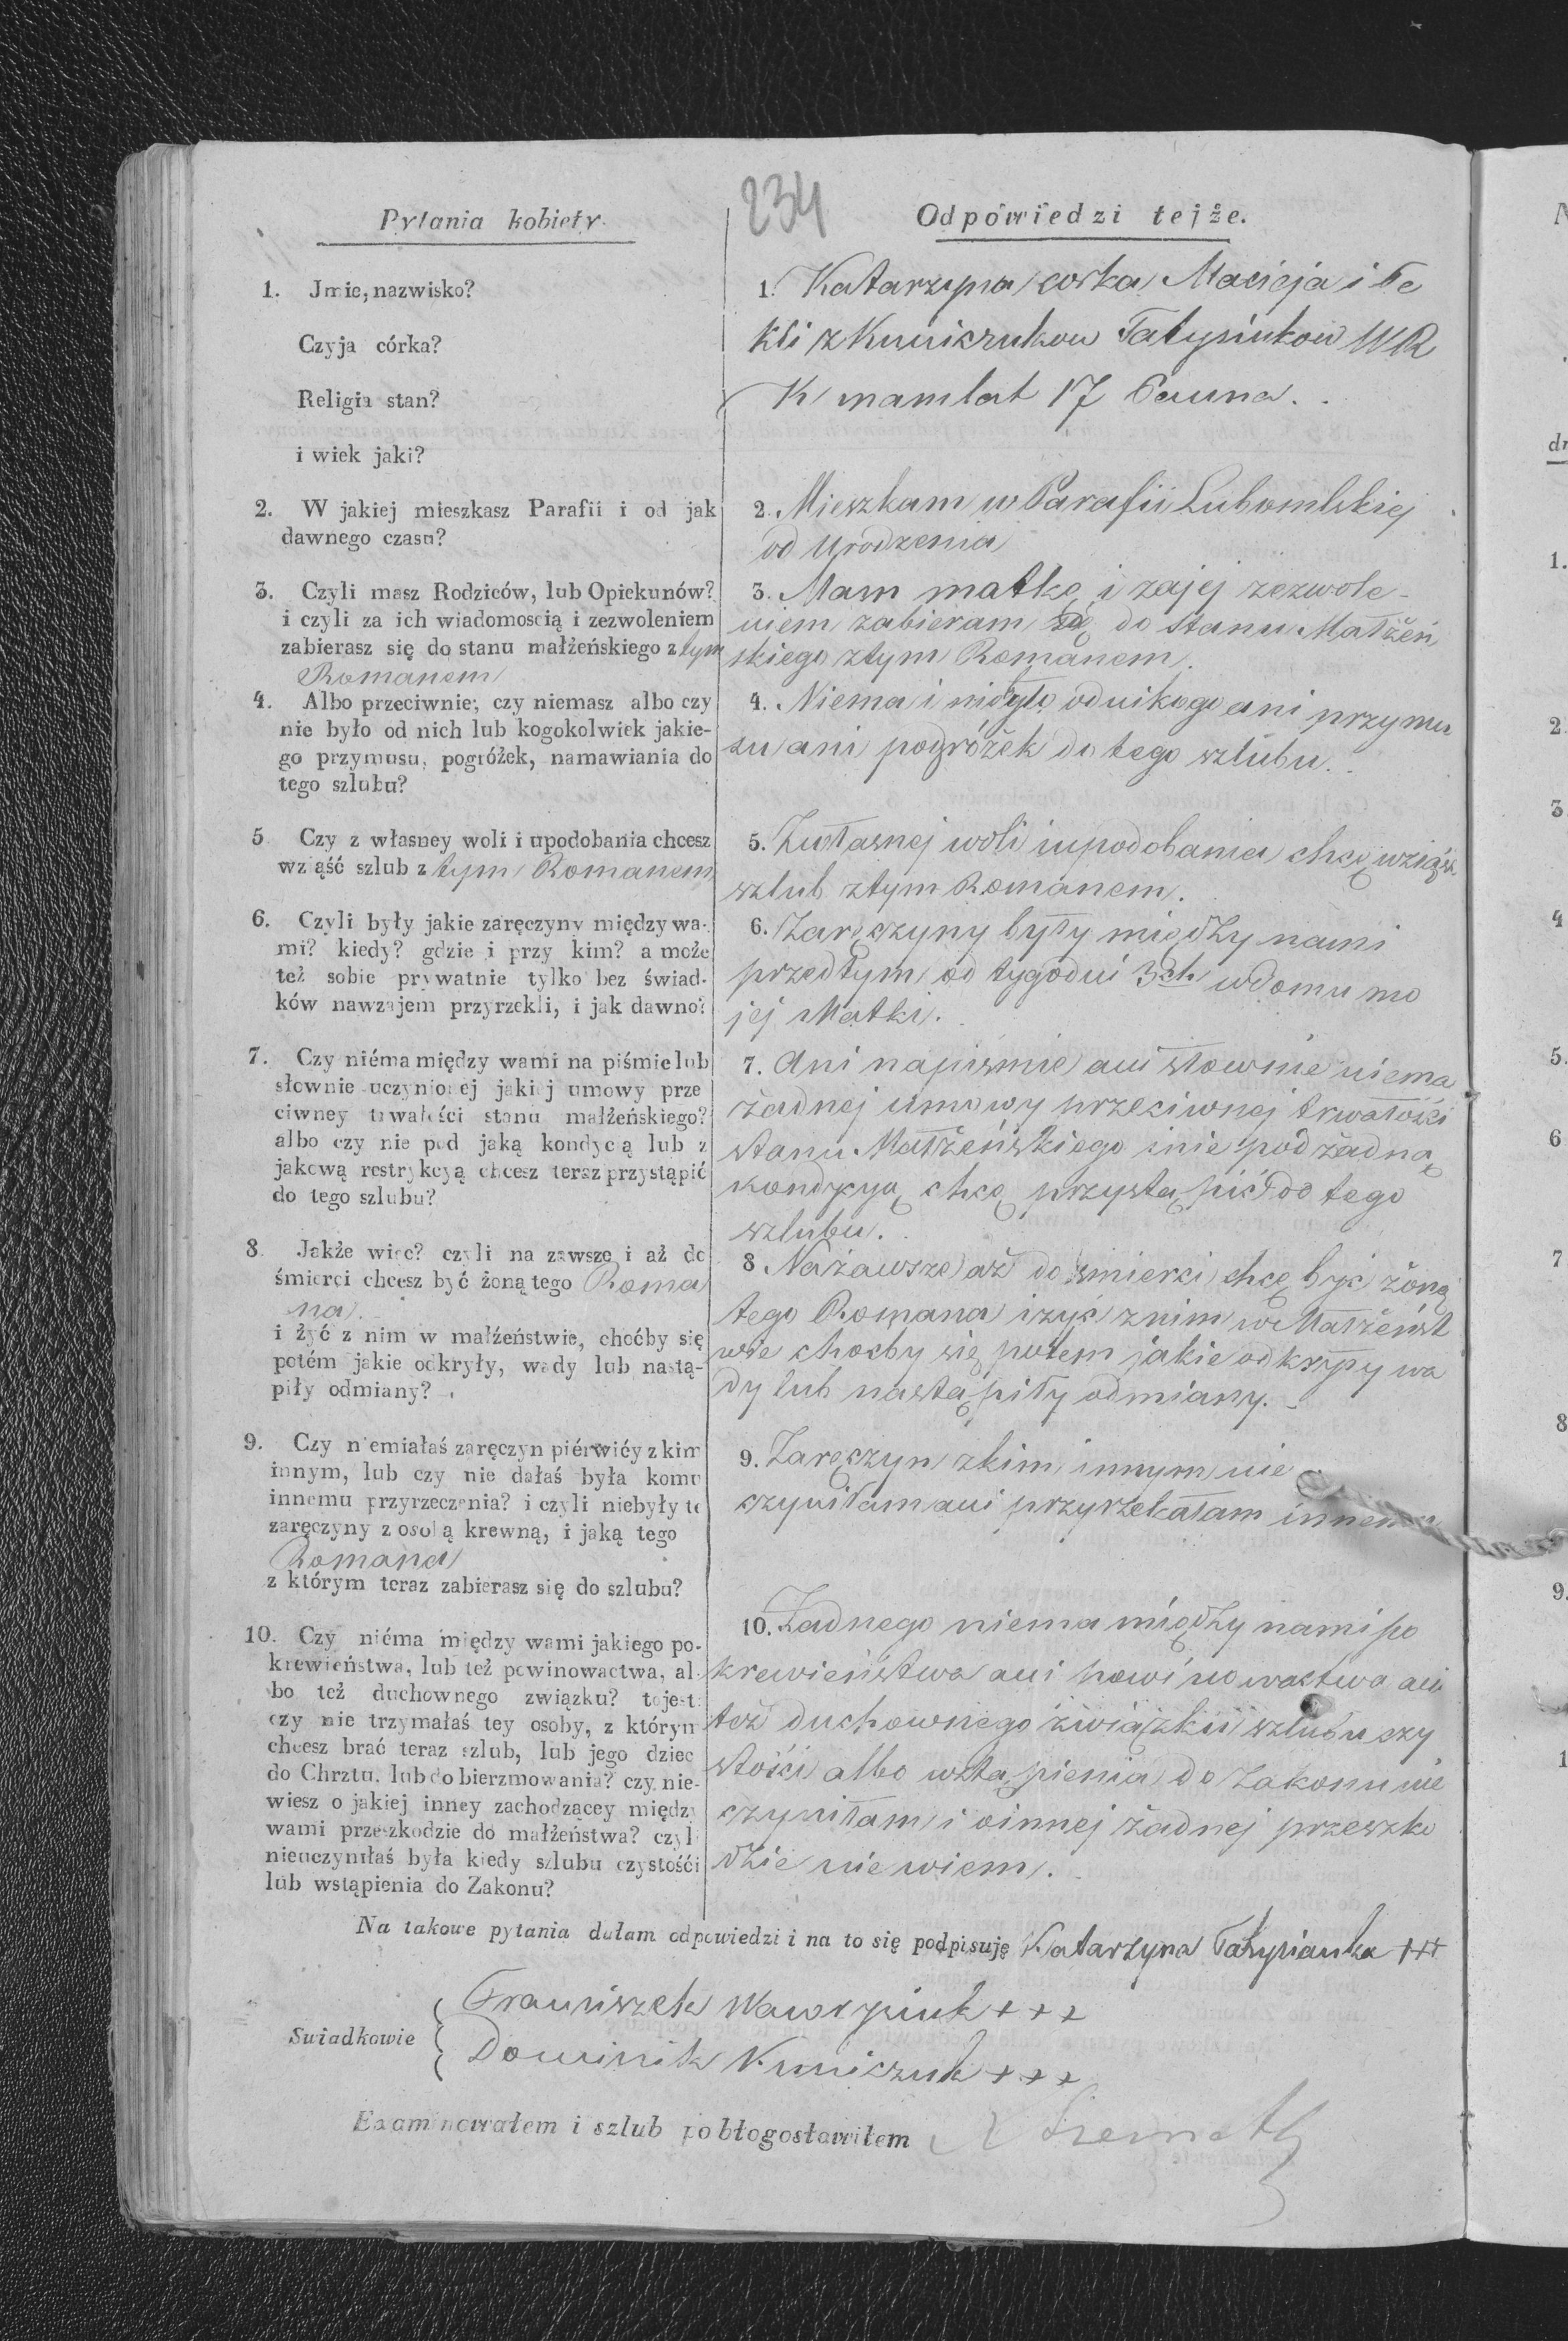 234
Pytania kobiety.
1. Jmie, nazwisko?
Czyja córka?
Religia stan?
i wiek jaki?
2. W jakiej mieszkasz Parafii i od jak
dawnego czasu?
3. Czyli masz Rodziców, lub Opiekunów?
i czyli za ich wiadomoscią i zezwoleniem
zabierasz się do stanu małżeńskiego z tym
Romanem
4. Albo przeciwnie, czy niemasz albo czy
nie było od nich lub kogokolwiek jakie-
go przymusu, pogróżek, namawiania do
tego szlubu?
5 Czy z własney woli i upodobania chcesz
wziąść szlub z tym Romanem
6. Czyli były jakie zaręczyny między wa-
mi? kiedy? gdzie i przy kim? a może
też sobie prywatnie tylko bez świad-
ków nawzajem przyrzekli, i jak dawno?
7. Czy niéma między wami na piśmie lub
słownie uczynionej jakiej umowy prze
ciwney trwałości stanu małżeńskiego?
albo czy nie pod jaką kondycią lub z
jakową restrykcyą chcesz teraz przystąpić
do tego szlubu?
8. Jakże więc? czyli na zawsze i aż do
śmierci chcesz być żoną tego Roma
na
i żyć z nim w małżeństwie, choćby się
potém jakie odkryły, wady lub nastą-
piły odmiany?
9. Czy niemiałaś zaręczyn piérwićy z kim
innym, lub czy nie dałaś była komu
innemu przyrzeczenia? i czyli niebyły te
zaręczyny z osobą krewną, i jaką tego
Romana
z którym teraz zabierasz się do szlubu?
10. Czy niéma między wami jakiego po-
krewieństwa, lub też powinowactwa, al-
bo też duchownego związku? to jest:
czy nie trzymałaś tey osoby, z którym
chcesz brać teraz szlub, lub jego dziec
do Chrztu, lub do bierzmowania? czy nie-
wiesz o jakiej inney zachodzącey między
wami przeszkodzie do małżeństwa? czyl
nieuczyniłaś była kiedy szlubu czystośći
lub wstąpienia do Zakonu?
Odpowiedzi tejże.
1. Katarzyna corka Macieja i Te
kli z Kuniczukow Tatysiukow WR
K mam lat 17 Panna.
2. Mieszkam w Parafii Lubomlskiej
od Urodzenia
3. Mam matkę i zajej zezwole-
niem zabieram się do stanu Małżeń
skiego ztym Romanem.
4. Niema i niebyło odnikogo ani przymu
su ani pogróżek do tego szlubu.
5. Zwłasnej woli iupodobania chcę wziąść
szlub ztym Romanem.
6. Zaręczyny były między nami
przedtym od tygodni 3ch wdomu mo
jej Matki.
7. Ani napismie ani słownie niema
żadnej umowy przeciwnej trwałośći
stanu Małżeńskiego inie pod żadną
kondycyą chcę przystąpić do tego
szlubu.
8 Nazawsze aż do śmierci chcę być żoną
tego Romana iżyć znim w Małżeńst
wie chocby się potem jakie odkryły wa
dy lub nastąpiły odmiany.
9. Zaręczyn zkim innym nie
czyniłam ani przyrzekałam innemu
10. Żadnego niema między nami po
krewieństwa ani powinowactwa ani
też duchownego związku szlubu czy
stośći albo wstąpienia do Zakonu nie
czyniłam i oinnej żadnej przeszko
dzie niewiem.
Na takowe pytania dałam odpowiedzi i na to się podpisuję Katarzyna +++
Franciszek Wawrzyniuk +++
Swiadkowie
Dominik Kuniczuk +++
Examinowałem i szlub pobłogosławiłem